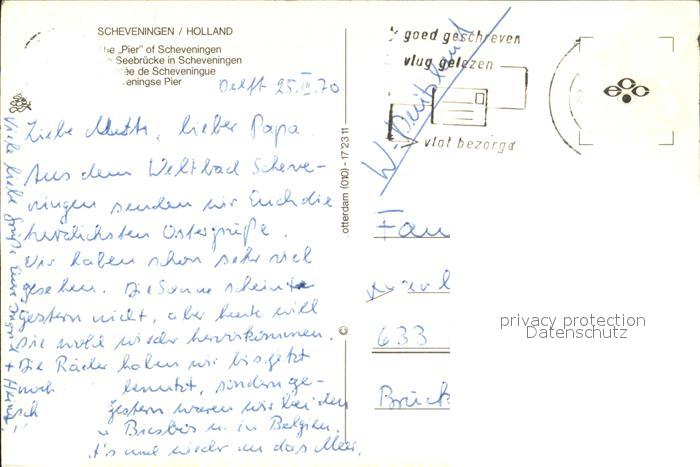 SCHEVENINGEN / HOLLAND
The „Pier" of Scheveningen
Seebrücke in Scheveningen
de Scheveningue
veningse Pier
Delft 25.III.70
Liebe Mutti, lieber Papa
Aus dem Weltbad Scheve-
ningen senden wir Euch die
herzlichsten Ostergrüße.
Wir haben schon sehr viel
gesehen. Die Sonne scheinte
gestern nicht, aber heute will
sie wohl wieder hervorkommen.
Die Räder haben wir bis jetzt
noch benutzt, sondern ge-
gestern waren wir bei den
u. in Belgien.
mal wieder an das Meer.
Viele liebe Grüße Eure + Heinz
otterdam (010) - 17 23 11
©
goed geschreven
vlug gelezen
vlot bezorgd
W. Deutschland
Fam
633
Brück
ecc
privacy protection
Datenschutz